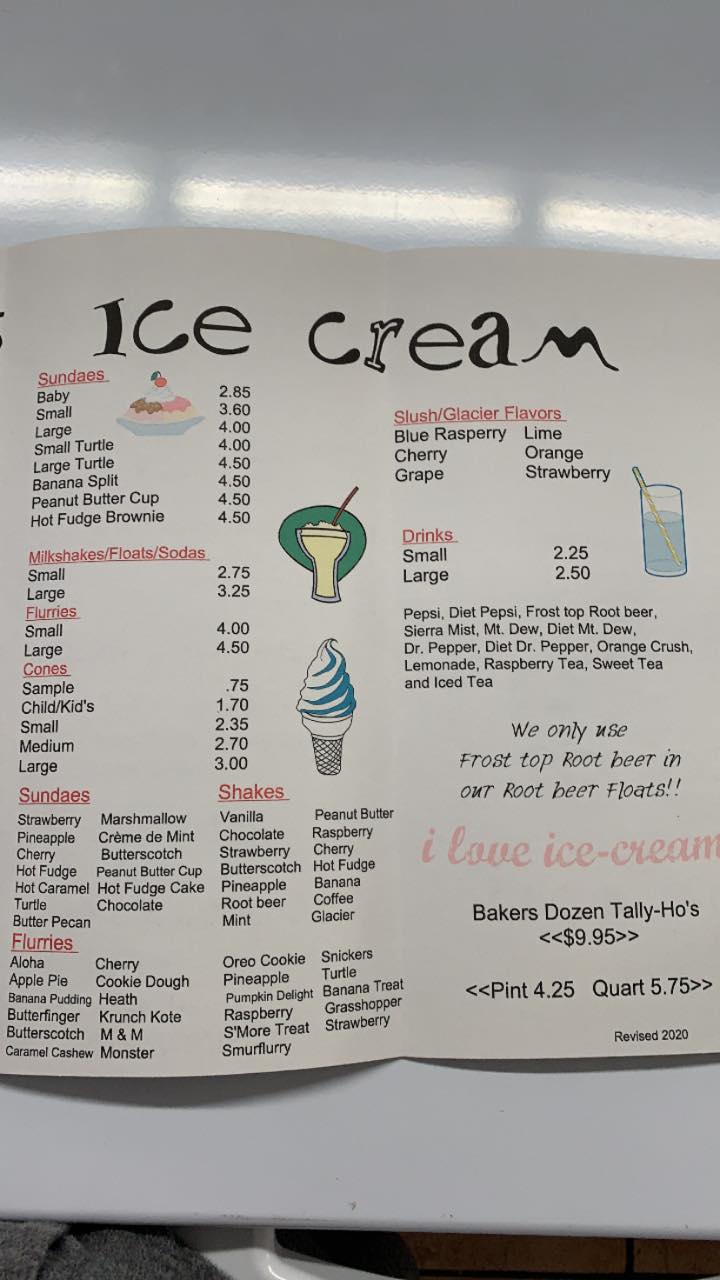 Ice cream
Sundaes
Baby 2.85
Small 3.60
Large 4.00
Small Turtle 4.00
Large Turtle 4.50
Banana Split 4.50
Peanut Butter Cup 4.50
Hot Fudge Brownie 4.50
Milkshakes/Floats/Sodas
Small 2.75
Large 3.25
Flurries
Small 4.00
Large 4.50
Cones
Sample .75
Child/Kid's 1.70
Small 2.35
Medium 2.70
Large 3.00
Sundaes
Strawberry Marshmallow
Pineapple Crème de Mint
Cherry Butterscotch
Hot Fudge Peanut Butter Cup
Hot Caramel Hot Fudge Cake
Turtle Chocolate
Butter Pecan
Shakes
Vanilla Peanut Butter
Chocolate Raspberry
Strawberry Cherry
Butterscotch Hot Fudge
Pineapple Banana
Root beer Coffee
Mint Glacier
Flurries
Aloha Cherry Oreo Cookie Snickers
Apple Pie Cookie Dough Pineapple Turtle
Banana Pudding Heath Pumpkin Delight Banana Treat
Butterfinger Krunch Kote Raspberry Grasshopper
Butterscotch M & M S'More Treat Strawberry
Caramel Cashew Monster Smurflurry
Slush/Glacier Flavors
Blue Rasperry Lime
Cherry Orange
Grape Strawberry
Drinks
Small 2.25
Large 2.50
Pepsi, Diet Pepsi, Frost top Root beer,
Sierra Mist, Mt. Dew, Diet Mt. Dew,
Dr. Pepper, Diet Dr. Pepper, Orange Crush,
Lemonade, Raspberry Tea, Sweet Tea
and Iced Tea
We only use
Frost top Root beer in
our Root beer Floats!!
i love ice-cream
Bakers Dozen Tally-Ho's
<<$9.95>>
<<Pint 4.25 Quart 5.75>>
Revised 2020